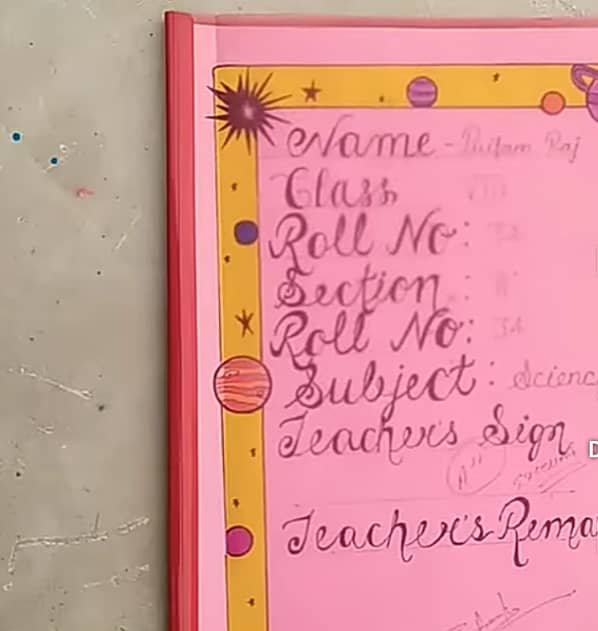 Name - Pritam Raj
Class VIII
Roll No: 34
Section :
Roll No: 34
Subject : Scienc
Teacher's Sign
A++
Teacher's Rema
D